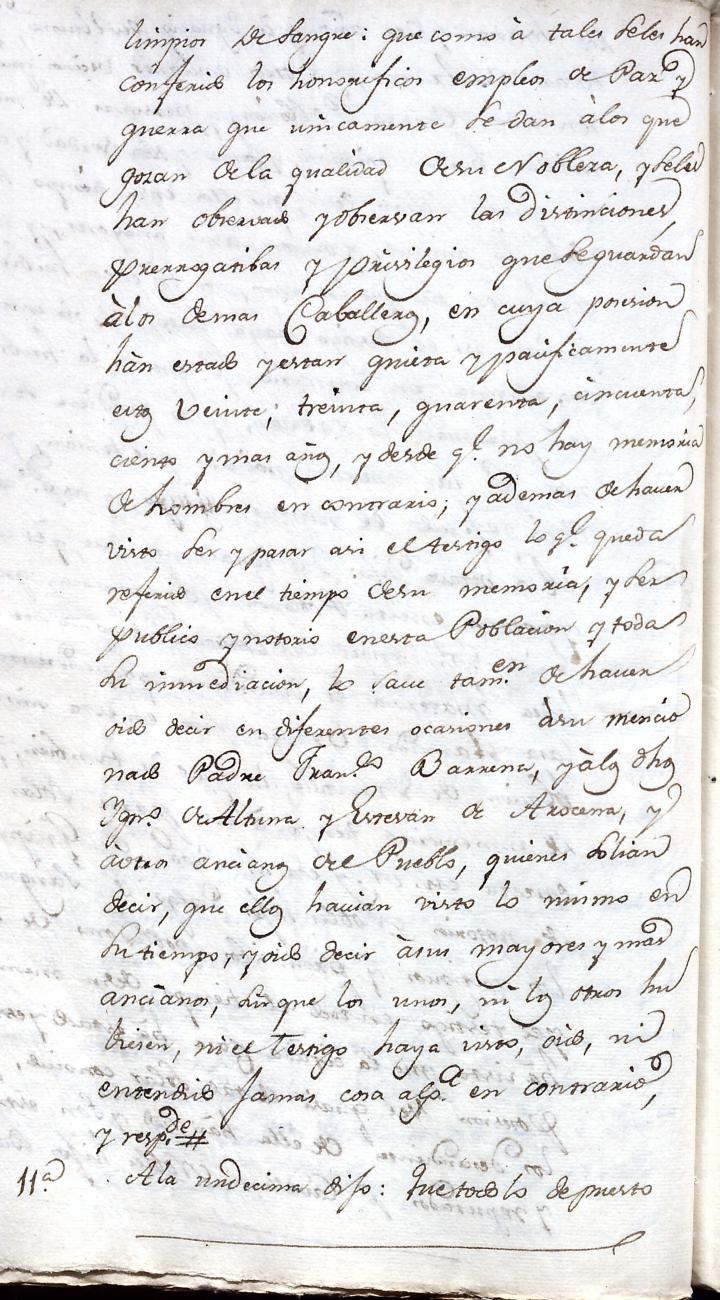 limpios de sangre: que como à tales seles han
conferido los honorificos empleos de Paz y
guerra que unicamente se dan àlos que
gozan dela qualidad desu Nobleza, y seles
han observado y observan las distinciones,
prerrogatibas y privilegios que se guardan
àlos demas Caballeros, en cuya posesion
hàn estado y estan quieta y pacificamente
estos veinte, treinta, quarenta, cincuenta,
ciento y mas años, y desde q.e no hay memoria
de hombres en contrario; y ademas de haver
visto ser y pasar asi el testigo lo q.e queda
referido enel tiempo desu memoria, y ser
publico y notorio enesta Poblacion y toda
su inmediacion, lo save tam.en de haver
oido decir en diferentes ocasiones àsu mencio
nado Padre Fran.co Barrena, y àlos dhos
Ygn.o de Altuna y Estevan de Arocena, y
àotros ancianos del Pueblo, quienes solian
decir, que ellos havian visto lo mismo en
su tiempo, y oido decir àsus mayores y mas
ancianos, sin que los unos, ni los otros hu
biesen, ni el Testigo haya visto, oido, ni
entendido Jamas cosa alg.a en contrario,
y resp.de #
11.a Ala undecima dijo: Que todo lo depuesto